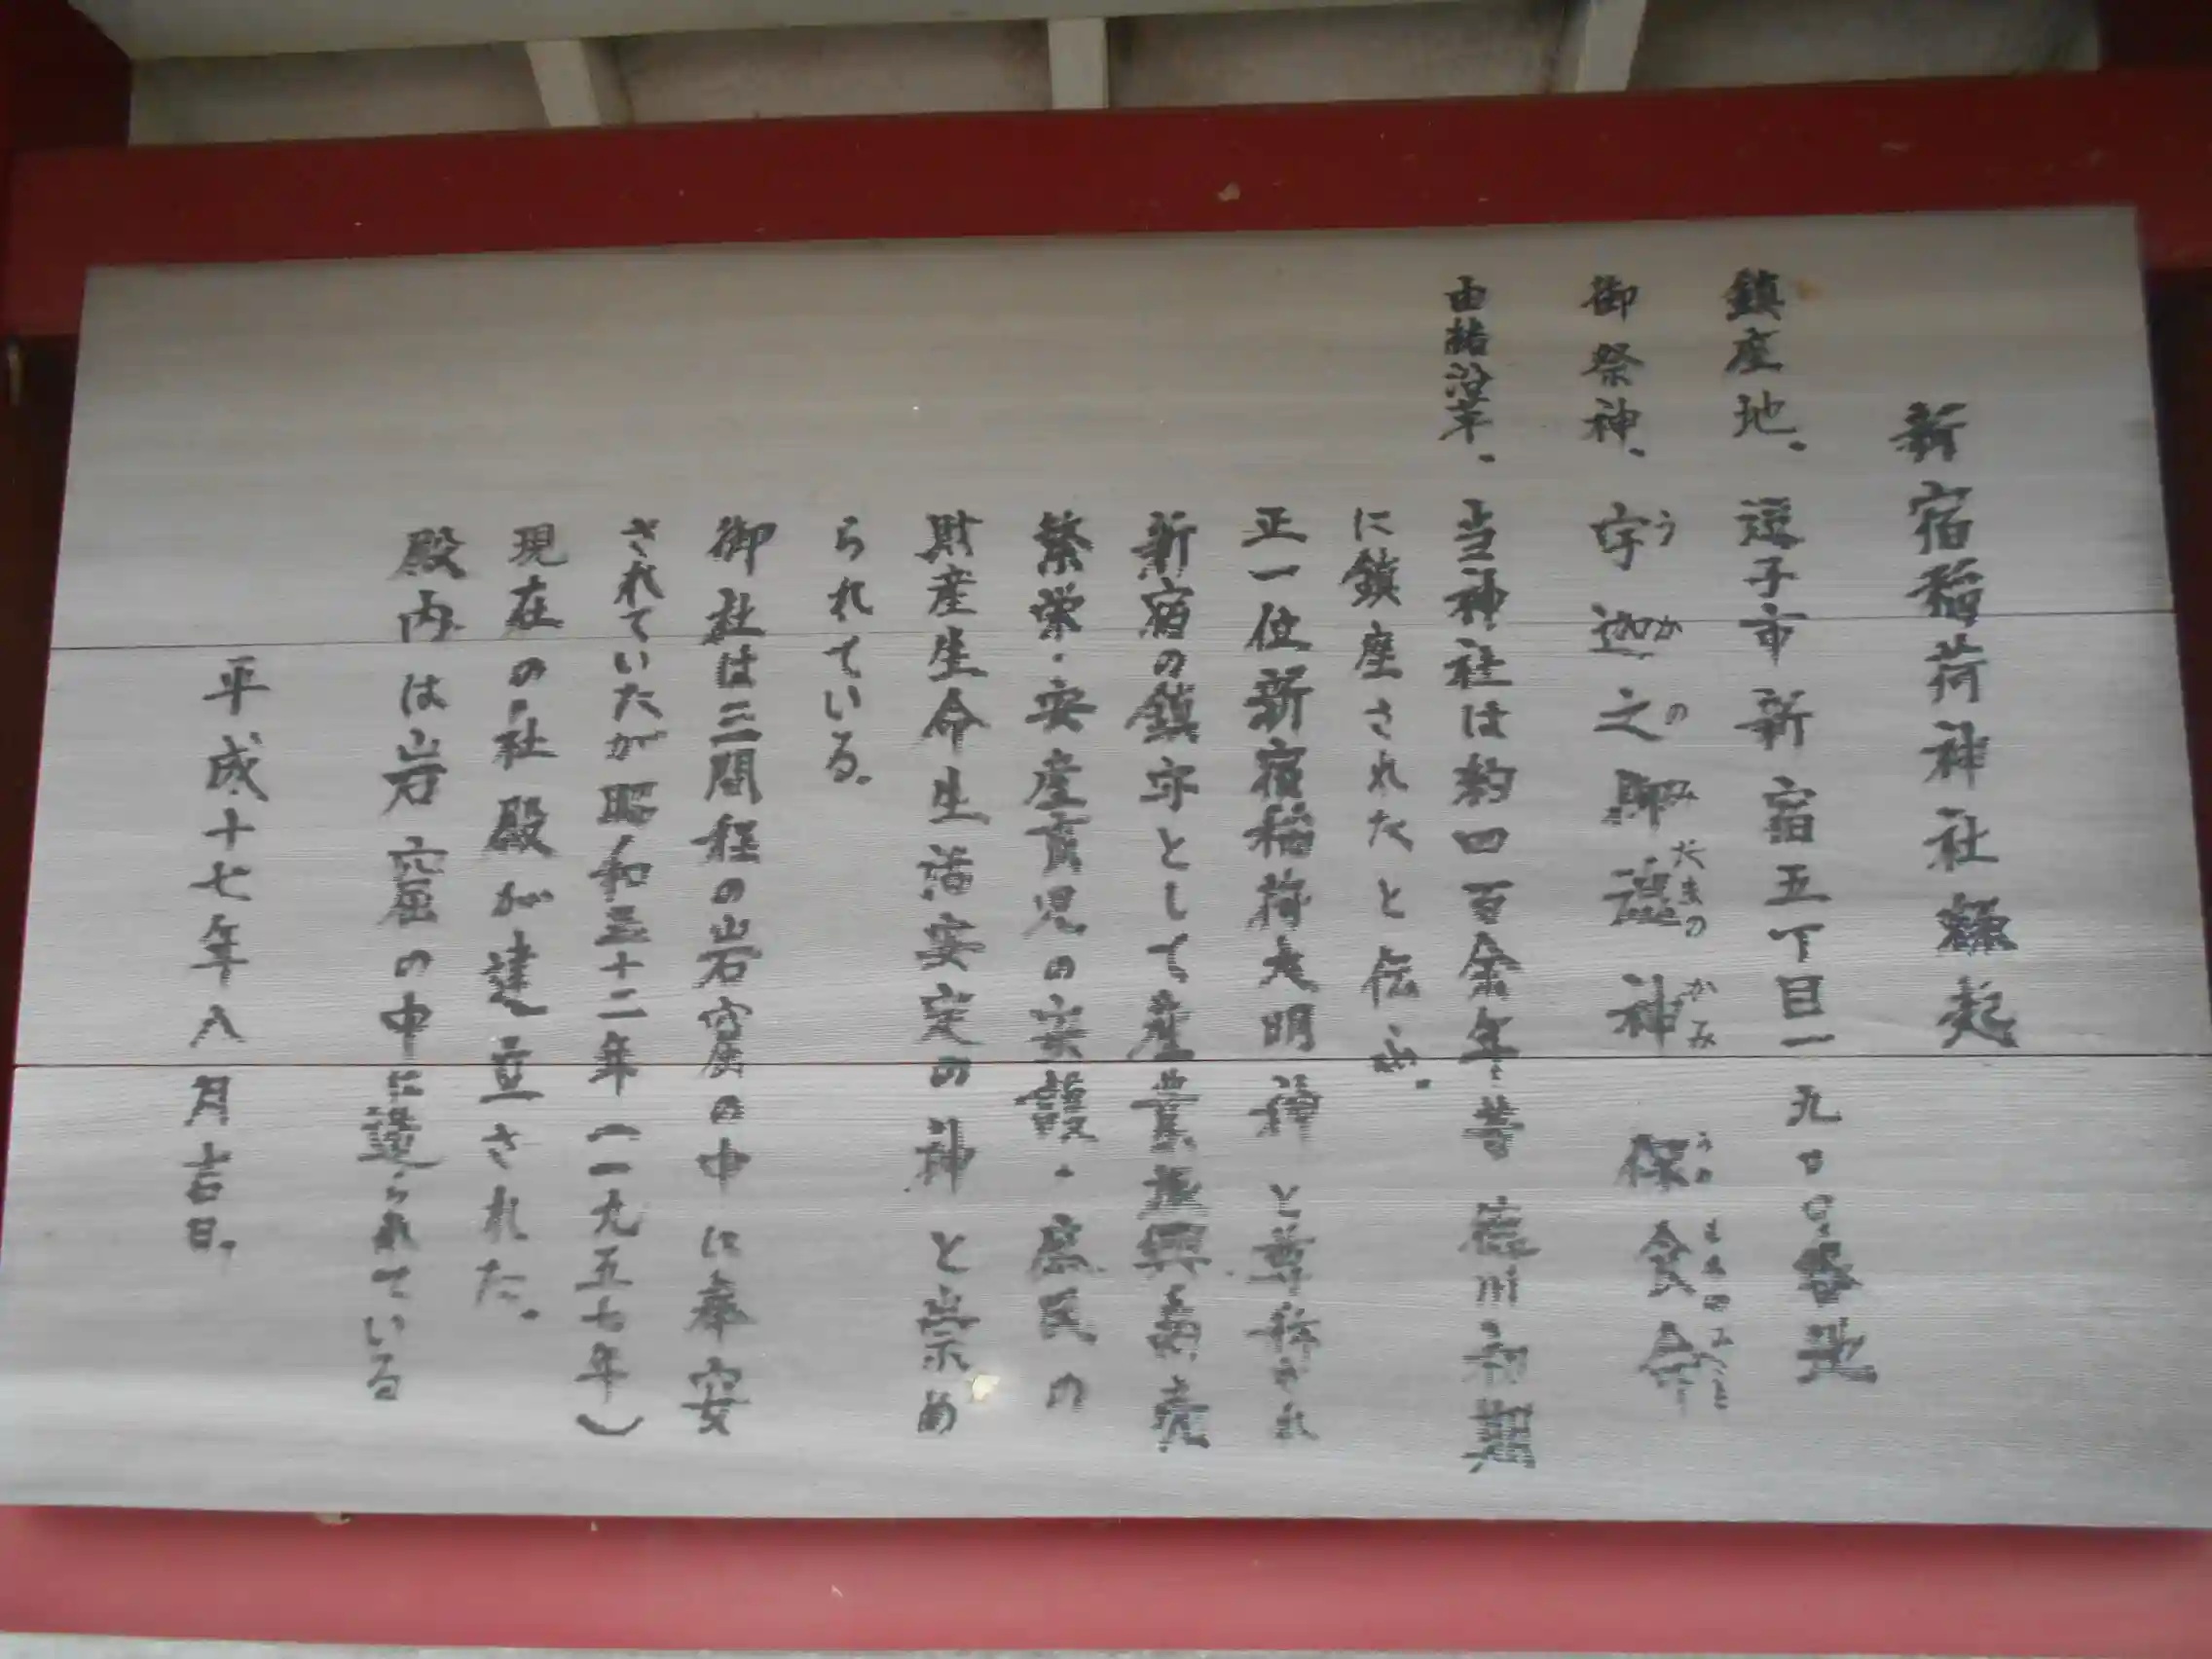 新宿稲荷神社縁起
鎮座地、逗子市新宿五丁目一九カ〇番地
御祭神、宇迦之御魂神 保食命
うかのみたまのかみ うけもちのみこと
由緒沿革、当神社は約四百余年昔 徳川初期
に鎮座されたと伝ふ。
正一位新宿稲荷大明神と尊称され
新宿の鎮守として産業振興商売
繁栄・安産育児の守護・庶民の
財産生命生活安定の神と崇め
られている。
御社は三間程の岩窟の中に奉安
されていたが昭和三十二年(一九五七年)
現在の社殿が建立された。
殿内は岩窟の中に造られている
平成十七年八月吉日。